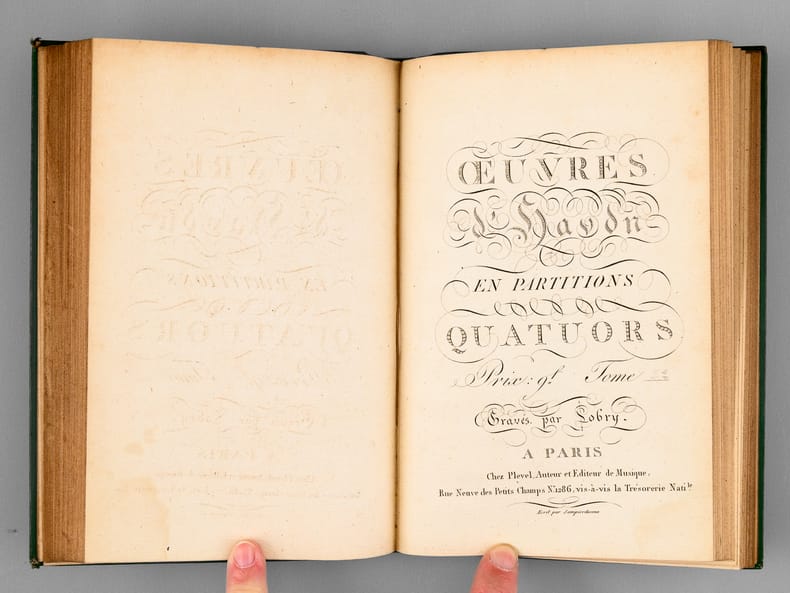 ŒUVRES
d'Haydn
EN PARTITIONS
QUATUORS
Prix: 9ᶠ Tome
Gravés par Lobry.
A PARIS
Chez Pleyel, Auteur et Editeur de Musique,
Rue Neuve des Petits Champs Nº. 1286, vis-à-vis la Trésorerie Natiˡᵉ
Ecrit par